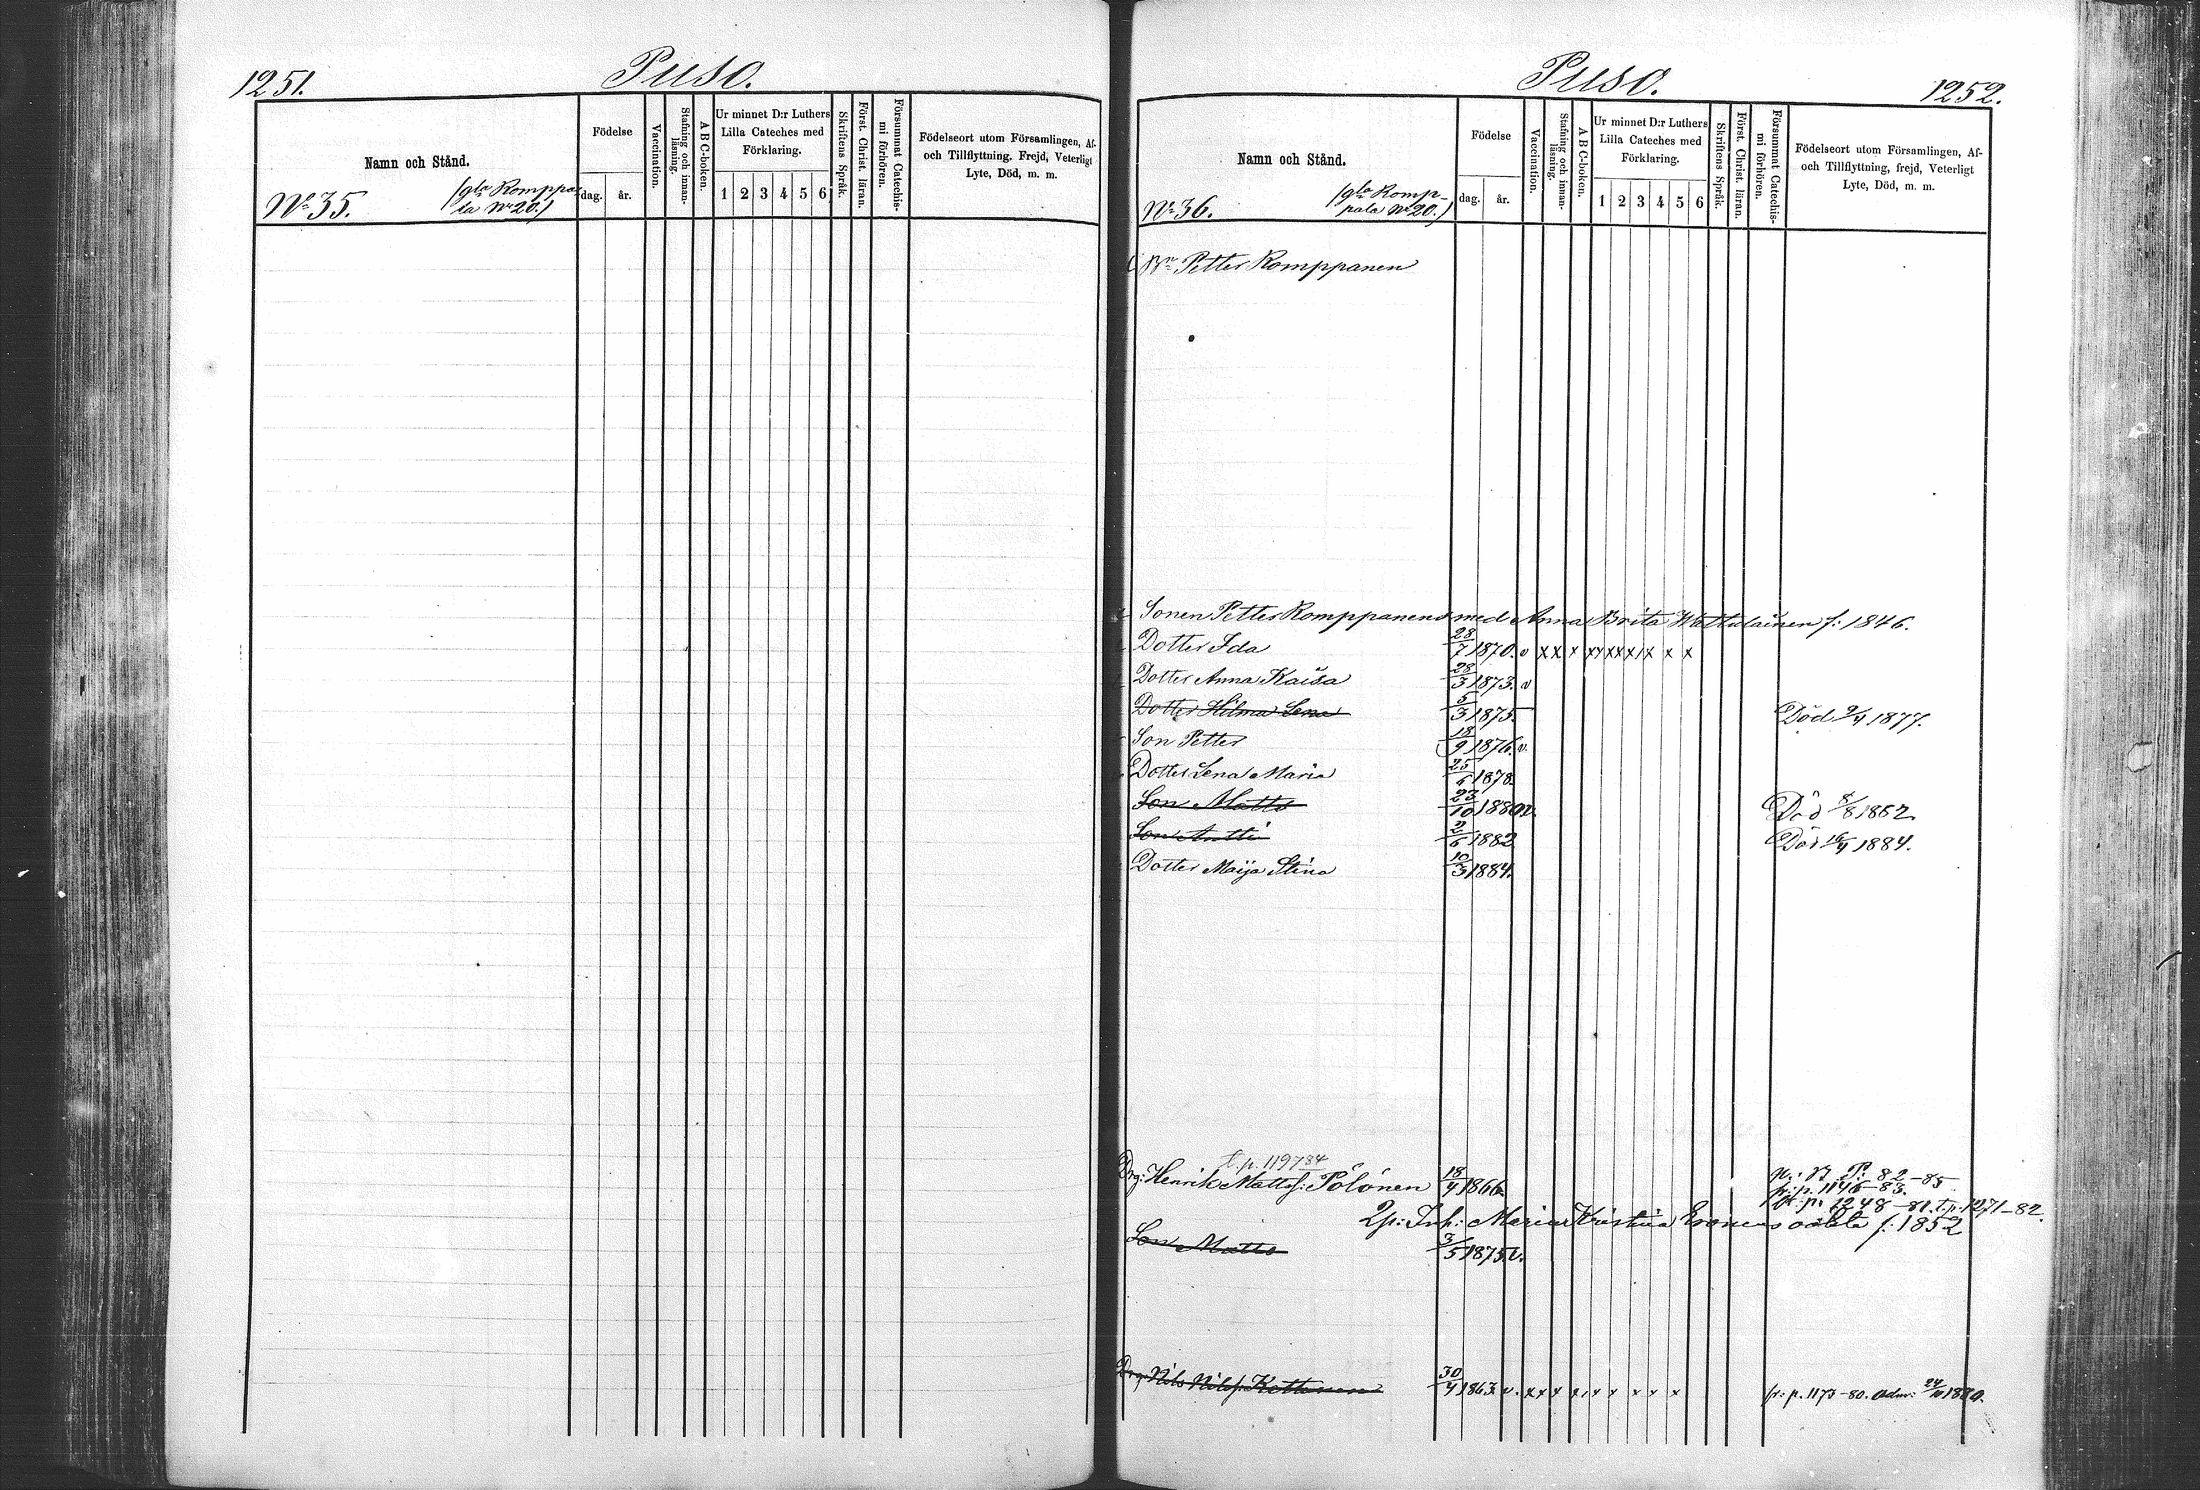 1251.
Puso.
Namn och Stånd.
Födelse
dag.
år.
Vaccination.
Stafning och innan-
läsning.
A B C-boken.
Ur minnet D:r Luthers
Lilla Cateches med
Förklaring.
1 2 3 4 5 6
Skriftens Språk.
Först. Christ. läran.
Försummat Catechis-
mi förhören.
Födelseort utom Församlingen, Af-
och Tillflyttning. Frejd, Veterligt
Lyte, Död, m. m.
No 35.
(gla Romppa-
la No 20.)
Puso.
1252.
Namn och Stånd.
Födelse
dag.
år.
Vaccination.
Stafning och innan-
läsning.
A B C-boken.
Ur minnet D:r Luthers
Lilla Cateches med
Förklaring.
1 2 3 4 5 6
Skriftens Språk.
Först. Christ. läran.
Försummat Catechis-
mi förhören.
Födelseort utom Församlingen, Af-
och Tillflyttning, frejd, Veterligt
Lyte, Död, m. m.
No 36.
(gla Romp-
pala No 20.)
Bn Petter Romppanen
Sonen Petter Romppanens med Anna Brita Wattulainen f: 1846.
Dotter Ida 28/7 1870. v x x x x x x x x x x x
Dotter Anna Kaisa 28/3 1873. v
Dotter Hilma Lena 5/3 1875. Död 9/4 1877.
Son Petter 18/9 1876. v.
Dotter Lena Maria 25/6 1878.
Son Matts 23/10 1880 v. Död 8/8 1882.
Son Antti 2/6 1882 Död 16/4 1884.
Dotter Maija Stina 10/3 1884.
t. p. 1197 84
Drg: Henrik Mattsf: Pölönen 18/4 1866.
P: 82-85
fr: p. 1146-83.
fr: p: 1248-81. t. p. 1271-82.
Inh: Maria Kristina Eronens oäkta f: 1852
Son Matts 3/5 1875. v.
Drg: Nils Nilsf: Kettunen 30/4 1863. v. x x x x x x x x x fr: p. 1173-80. Adm: 24/10 1880.